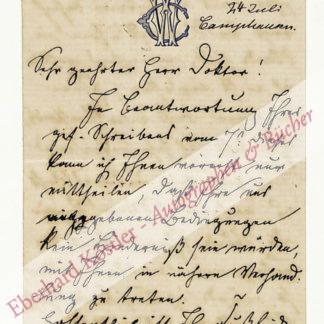 24 Juli
Camphausen.
Sehr geehrter Herr Doktor!
In Beantwortung Ihres
gef. Schreibens vom
kann ich Ihnen nur
mittheilen, daß Ihre uns
angegebenen Bedingungen
kein Hinderniß sein würden,
mit Ihnen in nähere Verhand
lung zu treten.
Eberhard Köstler - Autographen & Bücher